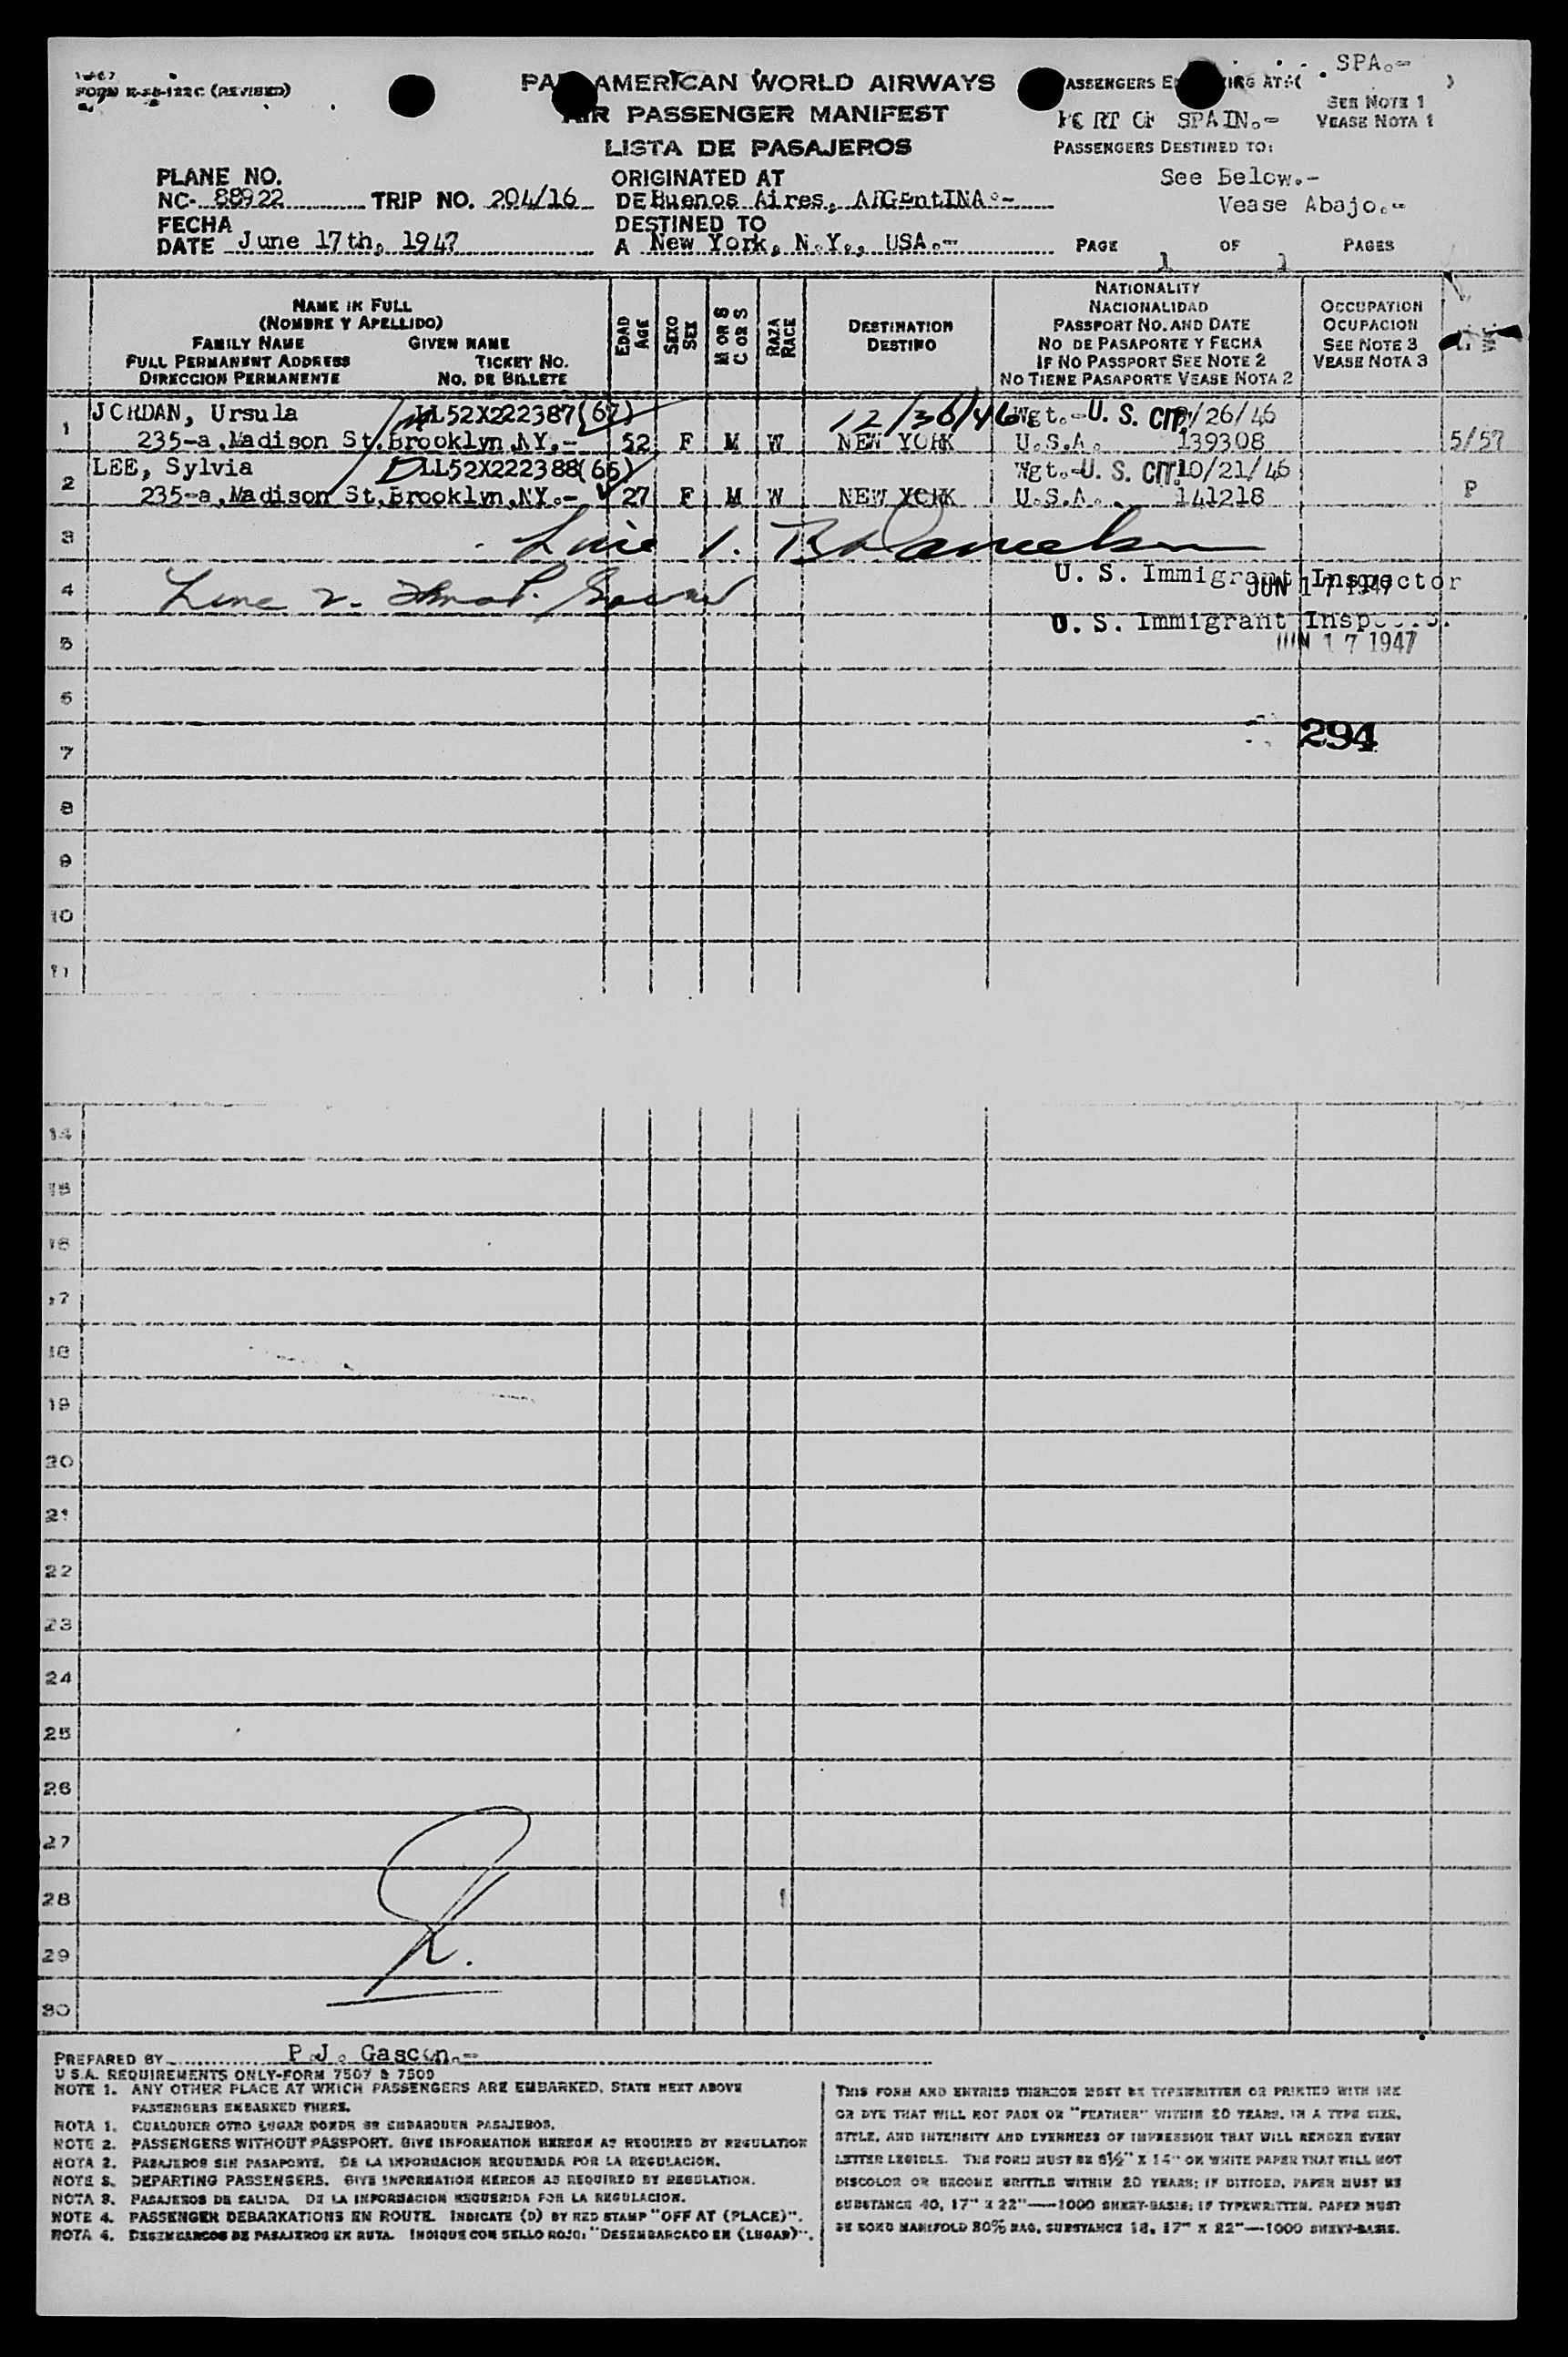 FORM K-38-122C (REVISED)
PAN AMERICAN WORLD AIRWAYS
AIR PASSENGER MANIFEST
LISTA DE PASAJEROS
PASSENGERS EMBARKING AT:( SPA.- )
PORT OF SPAIN.-
SEE NOTE 1
VEASE NOTA 1
PASSENGERS DESTINED TO:
See Below.-
Vease Abajo.-
PLANE NO.
NC- 88922 TRIP NO. 204/16
FECHA
DATE June 17th, 1947
ORIGINATED AT
DE Buenos Aires, ARGentINA.-
DESTINED TO
A New York, N.Y., USA.-
PAGE 1 OF 1 PAGES
NAME IN FULL
(NOMBRE Y APELLIDO)
FAMILY NAME GIVEN NAME
FULL PERMANENT ADDRESS TICKET NO.
DIRECCION PERMANENTE NO. DE BILLETE
EDAD
AGE
SEXO
SEX
M OR S
C OR S
RAZA
RACE
DESTINATION
DESTINO
NATIONALITY
NACIONALIDAD
PASSPORT NO. AND DATE
NO DE PASAPORTE Y FECHA
IF NO PASSPORT SEE NOTE 2
NO TIENE PASAPORTE VEASE NOTA 2
OCCUPATION
OCUPACION
SEE NOTE 3
VEASE NOTA 3
1 JORDAN, Ursula LL52X222387(67) 12/30/46 Wgt.- U. S. CIT. /26/46
235-a,Madison St.Brooklyn,NY.- 52 F M W NEW YORK U.S.A. 139308 5/57
2 LEE, Sylvia LL52X222388(66) Wgt.- U. S. CIT. 10/21/46
235-a,Madison St.Brooklyn,NY.- 27 F M W NEW YORK U.S.A. 141218 P
3 Line 1.
U. S. Immigrant Inspector
JUN 17 1947
4 Line 2.
U. S. Immigrant Inspector
JUN 17 1947
5
6
294
7
8
9
10
11
14
15
16
17
18
19
20
21
22
23
24
25
26
27
28
29
30
PREPARED BY P.J. Gascon.-
U S.A. REQUIREMENTS ONLY-FORM 7507 & 7509
NOTE 1. ANY OTHER PLACE AT WHICH PASSENGERS ARE EMBARKED, STATE NEXT ABOVE
PASSENGERS EMBARKED THERE.
NOTA 1. CUALQUIER OTRO LUGAR DONDE SE EMBARQUEN PASAJEROS.
NOTE 2. PASSENGERS WITHOUT PASSPORT. GIVE INFORMATION HEREON AS REQUIRED BY REGULATION
NOTA 2. PASAJEROS SIN PASAPORTE. DE LA INFORMACION REQUERIDA POR LA REGULACION.
NOTE 3. DEPARTING PASSENGERS. GIVE INFORMATION HEREON AS REQUIRED BY REGULATION.
NOTA 3. PASAJEROS DE SALIDA. DE LA INFORMACION REQUERIDA POR LA REGULACION.
NOTE 4. PASSENGER DEBARKATIONS EN ROUTE. INDICATE (D) BY RED STAMP "OFF AT (PLACE)".
NOTA 4. DESEMBARCOS DE PASAJEROS EN RUTA. INDIQUE CON SELLO ROJO: "DESEMBARCADO EN (LUGAR)".
THIS FORM AND ENTRIES THEREON MUST BE TYPEWRITTEN OR PRINTED WITH INK
OR DYE THAT WILL NOT FADE OR "FEATHER" WITHIN 20 YEARS, IN A TYPE SIZE,
STYLE, AND INTENSITY AND EVENNESS OF IMPRESSION THAT WILL RENDER EVERY
LETTER LEGIBLE. THE FORM MUST BE 8½" X 14" ON WHITE PAPER THAT WILL NOT
DISCOLOR OR BECOME BRITTLE WITHIN 20 YEARS; IF DITTOED, PAPER MUST BE
SUBSTANCE 40, 17" X 22"—1000 SHEET-BASIS; IF TYPEWRITTEN, PAPER MUST
BE BOND MANIFOLD 80% RAG, SUBSTANCE 18, 17" X 22"—1000 SHEET-BASIS.